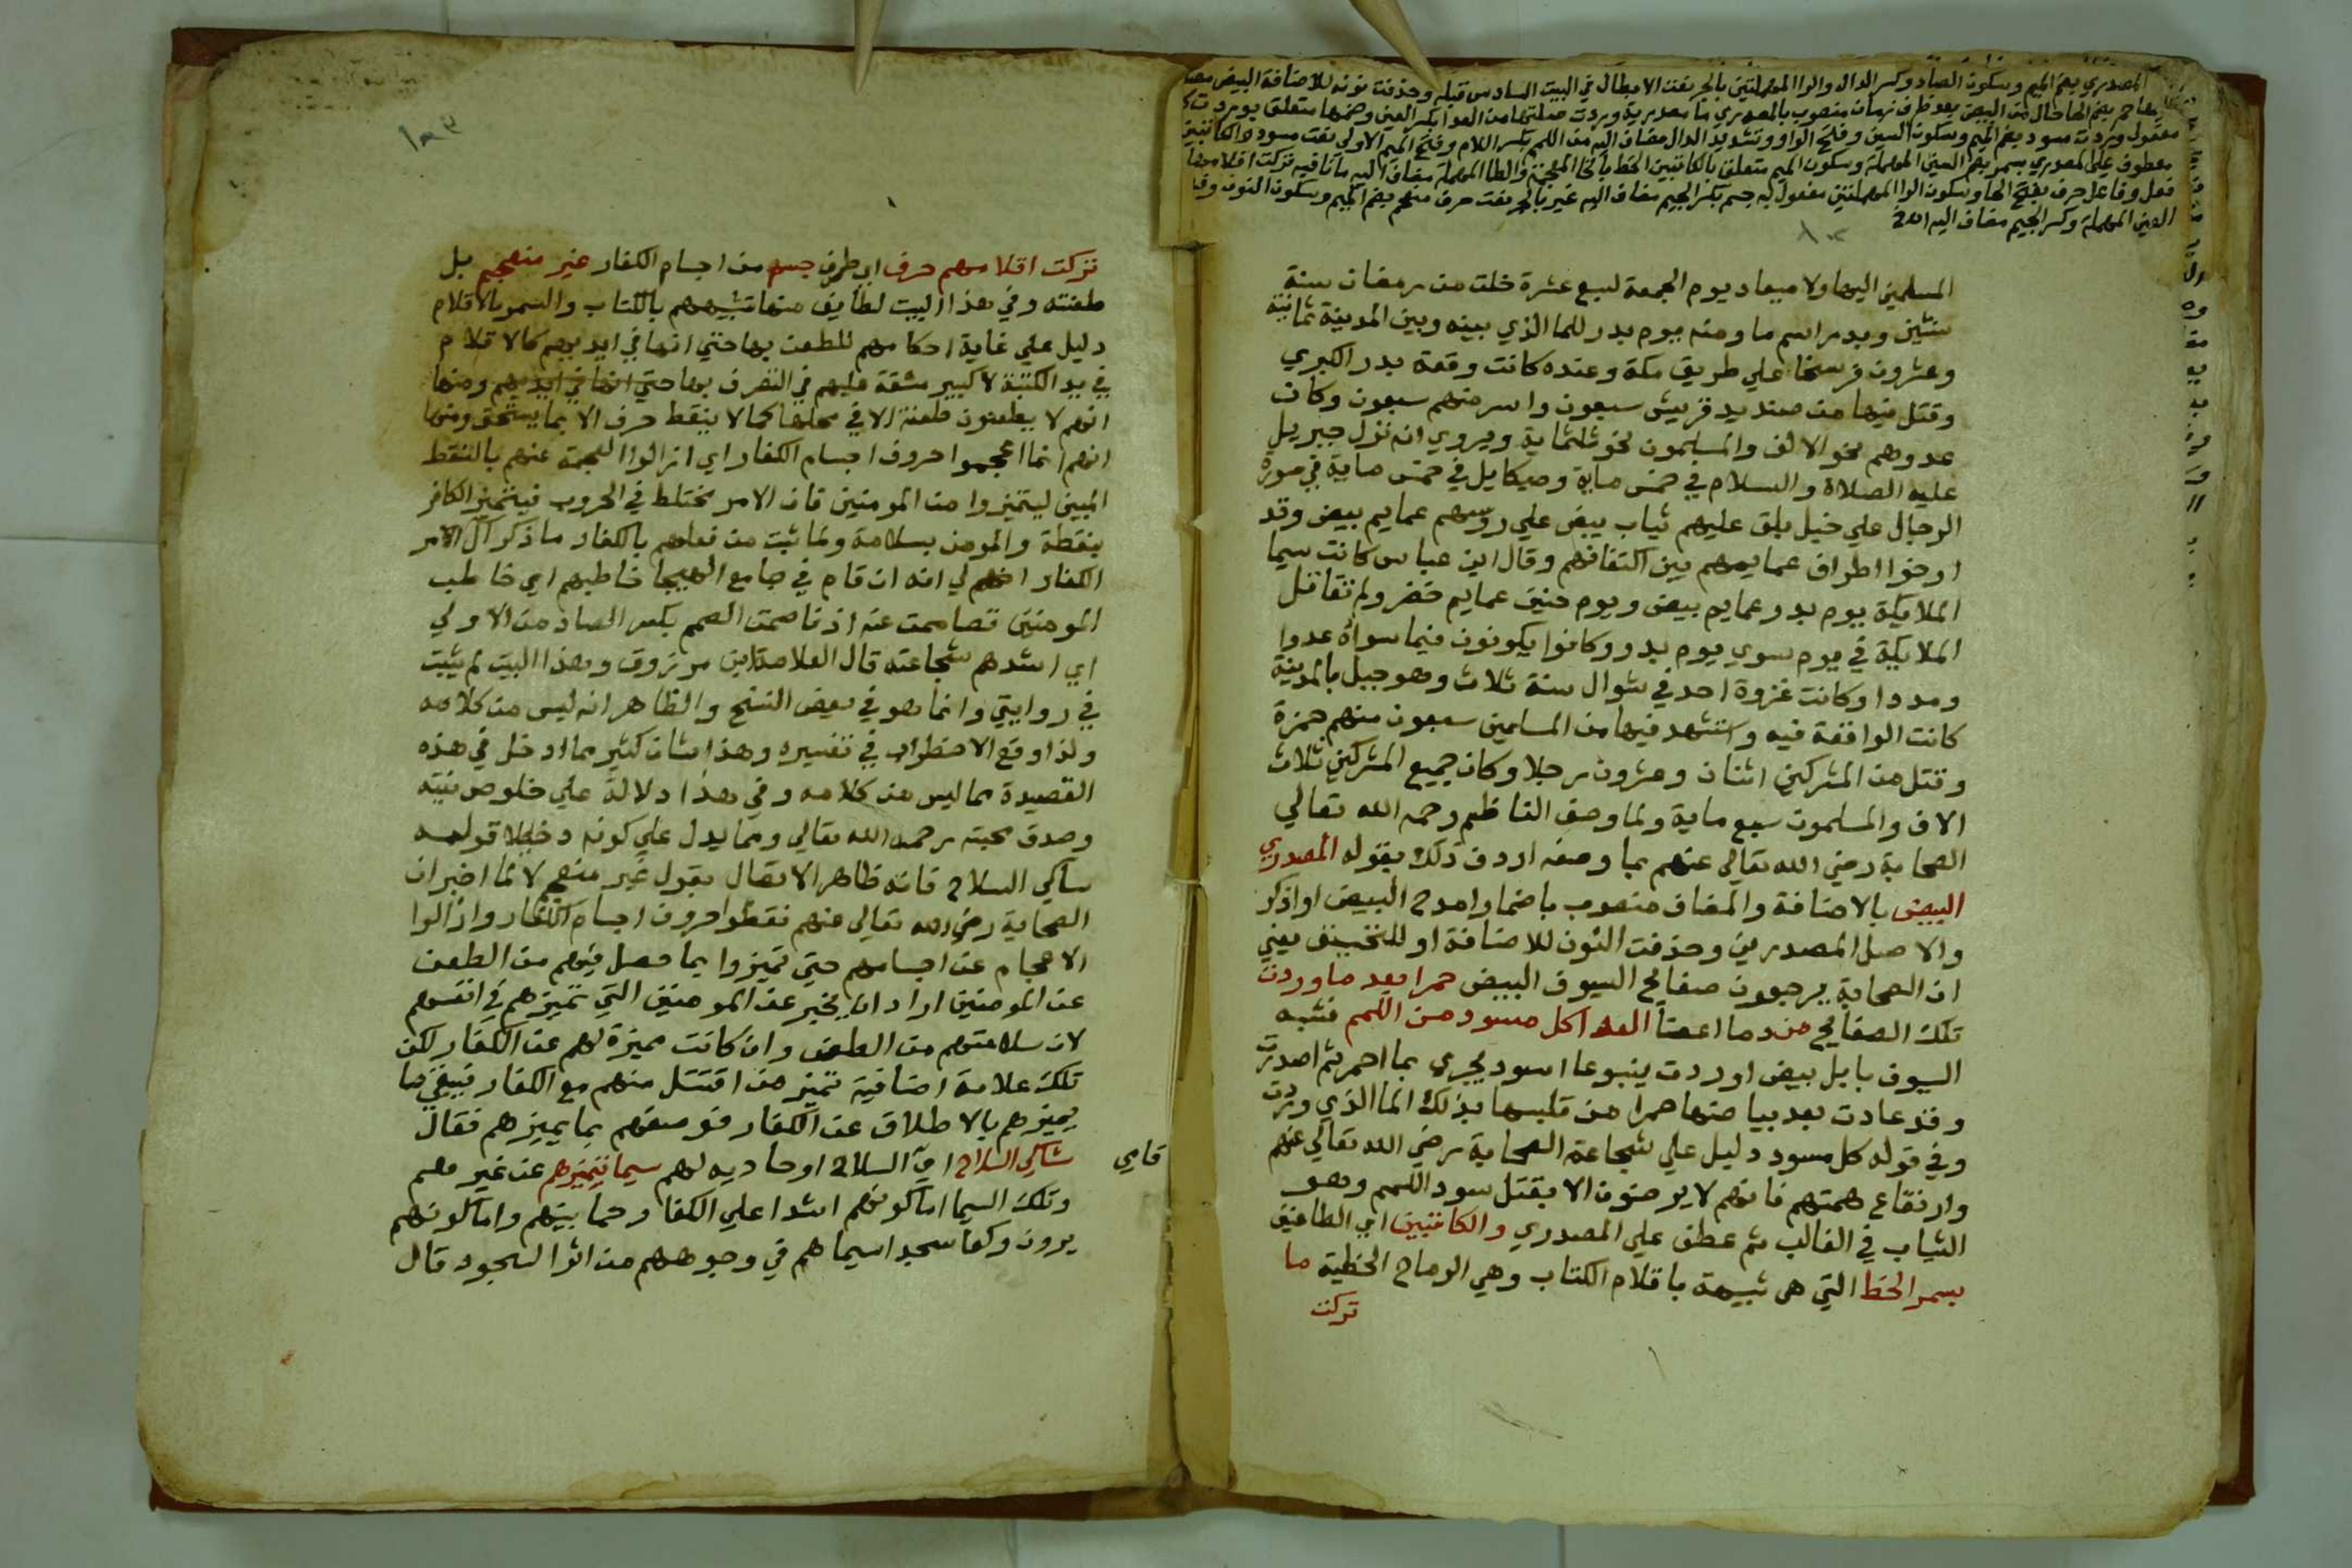 المصدري بضم الميم وسكون الصاد وكسر الدال والرا المهملتين بالجر نعت الابطال في البيت السادس قبله وحذفت نونه للاضافة البيض مضا
حمر بضم الحا حال من البيض بعد ظرف زمان منصوب بالمصدري ما مصدرية وردت صلتها من العدا بكسر العين وضمها متعلق بوردت كل
مفعول وردت مسود بضم الميم وسكون السين وفتح الواو وتشديد الدال مضاف اليه من اللمم بكسر اللام وفتح الميم الاولى نعت مسود والكاتبين
معطوف علي المصدري بسمر بضم السين المهملة وسكون الميم متعلق بالكاتبين الخط بالخا المعجمة والطا المهملة مضاف اليه ما نافيه تركت اقلامهم
فعل وفاعل حرف بفتح الحا وسكون الرا المهملتين مفعول به جسم بكسر الجيم مضاف اليه غير بالجر نعت حرف منعجم بضم الميم وسكون النون وفتح
العين المهملة وكسر الجيم مضاف اليه
المسلمين اليها ولا ميعاد يوم الجمعة لسبع عشرة خلت من رمضان سنة
سنتين وبدر اسم ما ومنه يوم بدر للما الذي بينه وبين المدينة ثمانية
وعشرون فرسخا علي طريق مكة وعنده كانت وقعة بدر الكبري
وقتل فيها من صنديد قريش سبعون واسر منهم سبعون وكان
عدوهم نحو الالف والمسلمون نحو ثلثماية ويروي انه نزل جبريل
عليه الصلاة والسلام في خمس ماية وميكايل في خمس ماية في صورة
الرجال علي خيل بلق عليهم ثياب بيض علي روسهم عمايم بيض وقد
ارخوا اطراف عمايمهم بين اكتفافهم وقال ابن عباس كانت سيما
الملايكة يوم بدر عمايم بيض ويوم حنين عمايم خضر ولم تقاتل
الملايكة في يوم سوي يوم بدر وكانوا يكونون فيما سواه عددا
ومددا وكانت غزوة احد في شوال سنة ثلاث وهو جبل بالمدينة
كانت الواقعة فيه واستشهد فيها من المسلمين سبعون منهم حمزة
وقتل من المشركين اثنان وعشرون رجلا وكان جميع المشركين ثلاث
الاف والمسلمون سبع ماية ولما وصف الناظم رحمه الله تعالي
الصحابة رضي الله تعالي عنهم بما وصفه اردف ذلك بقوله المصدري
البيض بالاضافة والمضاف منصوب باضمار امدح البيض او اذكر
والاصل المصدرين وحذفت النون للاضافة او للتخفيف يعني
ان الصحابة يرجعون صفائح السيوف البيض حمرا بعد ما وردت
تلك الصفائح من دما اعضا العدا كل مسود من اللمم فشبه
السيوف بابل بيض اوردت ينبوعا اسود يجري بما احمر ثم اصدرت
وقد عادت بعد بياضها حمرا من تلبسها بذلك الما الذي وردت
وفي قوله كل مسود دليل علي شجاعة الصحابة رضي الله تعالي عنهم
وارتفاع همتهم فانهم لا يرضون الا بقتل سود اللمم وهو
الشباب في الغالب ثم عطف علي المصدري والكاتبين اي الطاعنين
بسمر الخط التي هي شبيهة باقلام الكتاب وهي الرماح الخطية ما
تركت
١٠٣
تركت اقلامهم حرف اي طرف جسم من اجسام الكفار غير منعجم بل
طعنته وفي هذا البيت لطايف منها تشبيههم بالكتاب والسمر بالاقلام
دليل علي غاية احكامهم للطعن بها حتي انها في ايديهم كالاقلام
في يد الكتبة لا كبير مشقة عليهم في التصرف بها حتي انها في ايديهم ومنها
انهم لا يطعنون طعنة الا في محلها كما لا ينقط حرف الا بما يستحق ومنها
انهم انما اعجموا حروف اجسام الكفار اي ازالوا العجمة عنهم بالنقط
المبين ليتميزوا من المومنين فان الامر مختلط في الحروب فيتميز الكافر
بنقطة والمومن بسلامة ولما ثبت من فعلهم بالكفار ما ذكر آل الامر
الكفار انهم لي انه ان قام في جامع الهيجا خاطبهم اي خاطب
المومنين تصاممت عنه اذناصمت الصمم بكسر الصاد من الاولي
اي اشدهم شجاعته قال العلامة ابن مرزوق وهذا البيت لم يثبت
في روايتي وانما هو في بعض النسخ والظاهر انه ليس من كلامه
ولذا وقع الاضطراب في تفسيره وهذا شان كثير مما ادخل في هذه
القصيدة مما ليس من كلامه وفي هذا دلالة علي خلوص نيته
وصدق محبته رحمه الله تعالي ومما يدل علي كونه دخيلا قوله
ساكي السلاح فانه ظاهر الاتصال بقول غير منعجم لانه لما اخبر ان
الصحابة رضي الله تعالي عنهم نقطوا حروف اجسام الكفار وازالوا
الاعجام عن اجسامهم حتي تميزوا بما حصل فيهم من الطعن
عن المومنين اراد ان يخبر عن المومنين التي تميزهم في انفسهم
لان سلامتهم من الطعن وان كانت مميزة لهم عن الكفار لكن
تلك علامة اضافية تميز من اقتتل منهم مع الكفار فيبقي ما
يميزهم بالاطلاق عن الكفار فوصفهم بما يميزهم فقال
شاكي السلاح اي السلاح اوحاديه لهم سيما تميزهم عن غيرهم
وتلك السيما اما كونهم اشدا علي الكفار رحما بينهم واما كونهم
يرون ركعا سجدا سيماهم في وجوههم من اثر السجود قال